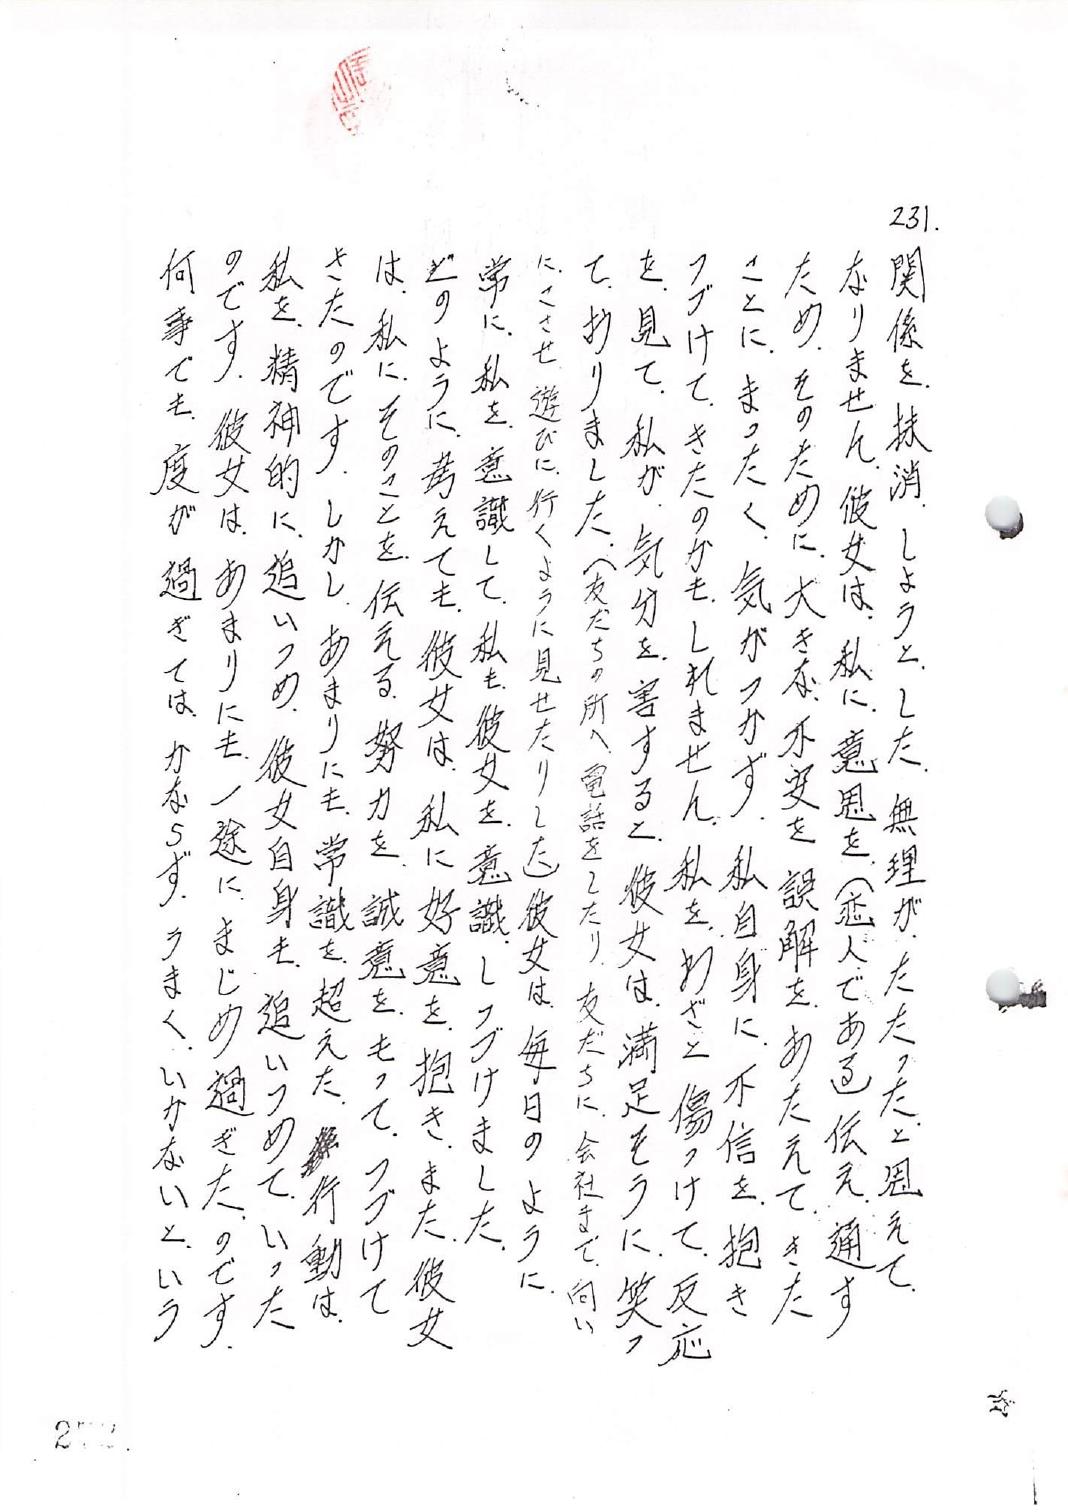 231.
関係を、抹消、しようと、した、無理が、たたった、と思えて、
なりません、彼女は、私に、意思を、(恋人である)伝え、通す
ため、そのために、大きな、不安を、誤解を、あたえて、きた
ことに、まったく、気がつかず、私自身に、不信を、抱き
つづけて、きたのかも、しれません、私を、わざと、傷つけて、反応
を、見て、私が、気分を、害すると、彼女は、満足そうに、笑っ
て、おりました、(友だちの所へ、電話をしたり、友だちに、会社まで、向い
に、こさせ、遊びに、行くように見せたりした)彼女は、毎日のように、
常に、私を、意識して、私も、彼女を、意識、しつづけました、
どのように、考えても、彼女は、私に好意を、抱き、また、彼女
は、私に、そのことを、伝える、努力を、誠意を、もって、つづけて
きたのです、しかし、あまりにも、常識を、超えた、行動は、
私を、精神的に、追いつめ、彼女自身も、追いつめて、いった
のです、彼女は、あまりにも、一途に、まじめ過ぎた、のです、
何事でも、度が過ぎては、かならず、うまく、いかないと、いう